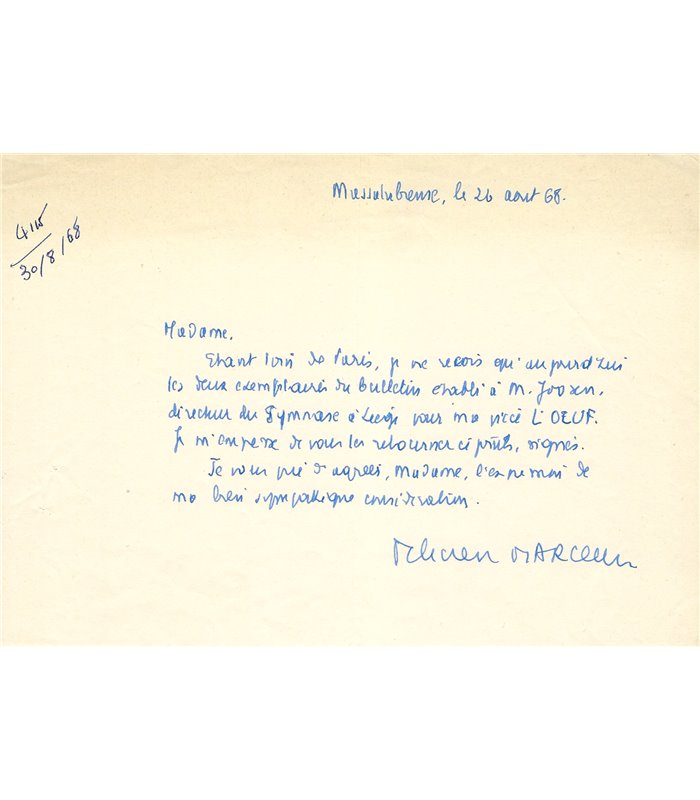 Massalubrense, le 26 aout 68.
30/8/68
Madame,
Etant loin de Paris, je ne reçois qu'aujourd'hui
les deux exemplaires du bulletin etabli à M. Joosen,
directeur du Gymnase à Liège pour ma pièce L'OEUF.
Je m'empresse de vous les retourner ci joints, signés.
Je vous prie d'agréer, Madame, l'expression de
ma bien sympathique consideration.
Felicien MARCEAU